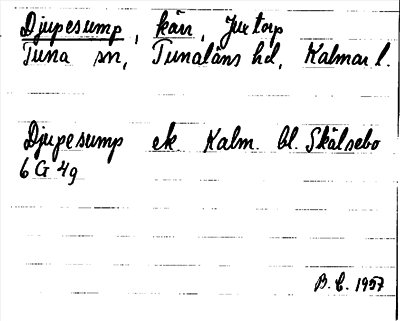 Djupesump, kärr, Juxtorp
Tuna sn, Tunaläns hd, Kalmar l.
Djupesump ek. Kalm. bl. Skälsebo
6 G 4g
B. C. 1957